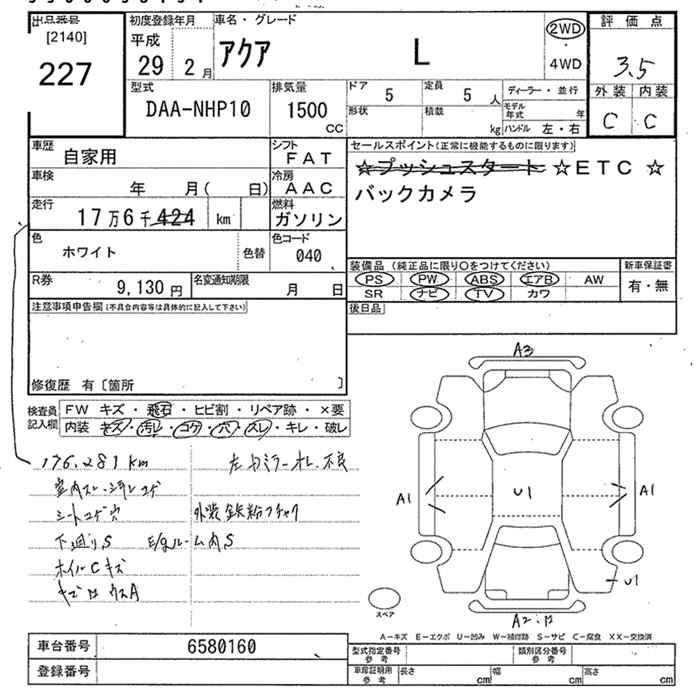 出品番号
[2140]
227
初度登録年月
平成
29 2月
車名・グレード
アクア L
2WD
4WD
評価点
3.5
外装 内装
C C
型式
DAA-NHP10
排気量
1500
CC
ドア 5
形状
定員 5 人
積載 kg
ディーラー・並行
モデル年式 年
ハンドル 左・右
車歴
自家用
シフト
FAT
車検
年 月( 日)
冷房
AAC
走行
17万6千424 km
燃料
ガソリン
色
ホワイト
色替
色コード
040
R券
9,130円
名変通知期限
月 日
セールスポイント(正常に機能するものに限ります)
☆プッシュスタート ☆ETC ☆
バックカメラ
装備品 (純正品に限り○をつけてください)
PS PW ABS エアB AW
SR ナビ TV カワ
新車保証書
有・無
後日品
注意事項申告欄(不具合内容等は具体的に記入して下さい)
修復歴 有〔箇所 〕
検査員記入欄
FW キズ・飛石・ヒビ割・リペア跡・×要
内装 キズ・汚れ・コゲ・穴・スレ・キレ・破レ
176,281km
シートコゲ穴
下廻りS
E/gルーム内S
ホイルCキズ
外装鉄粉フチャク
A3
A1
U1
A1
U1
A2
スペア
A-キズ E-エクボ U-凹み W-補修跡 S-サビ C-腐食 XX-交換済
車台番号
6580160
登録番号
型式指定番号 参考
類別区分番号 参考
車庫証明用 参考
長さ cm
幅 cm
高さ cm